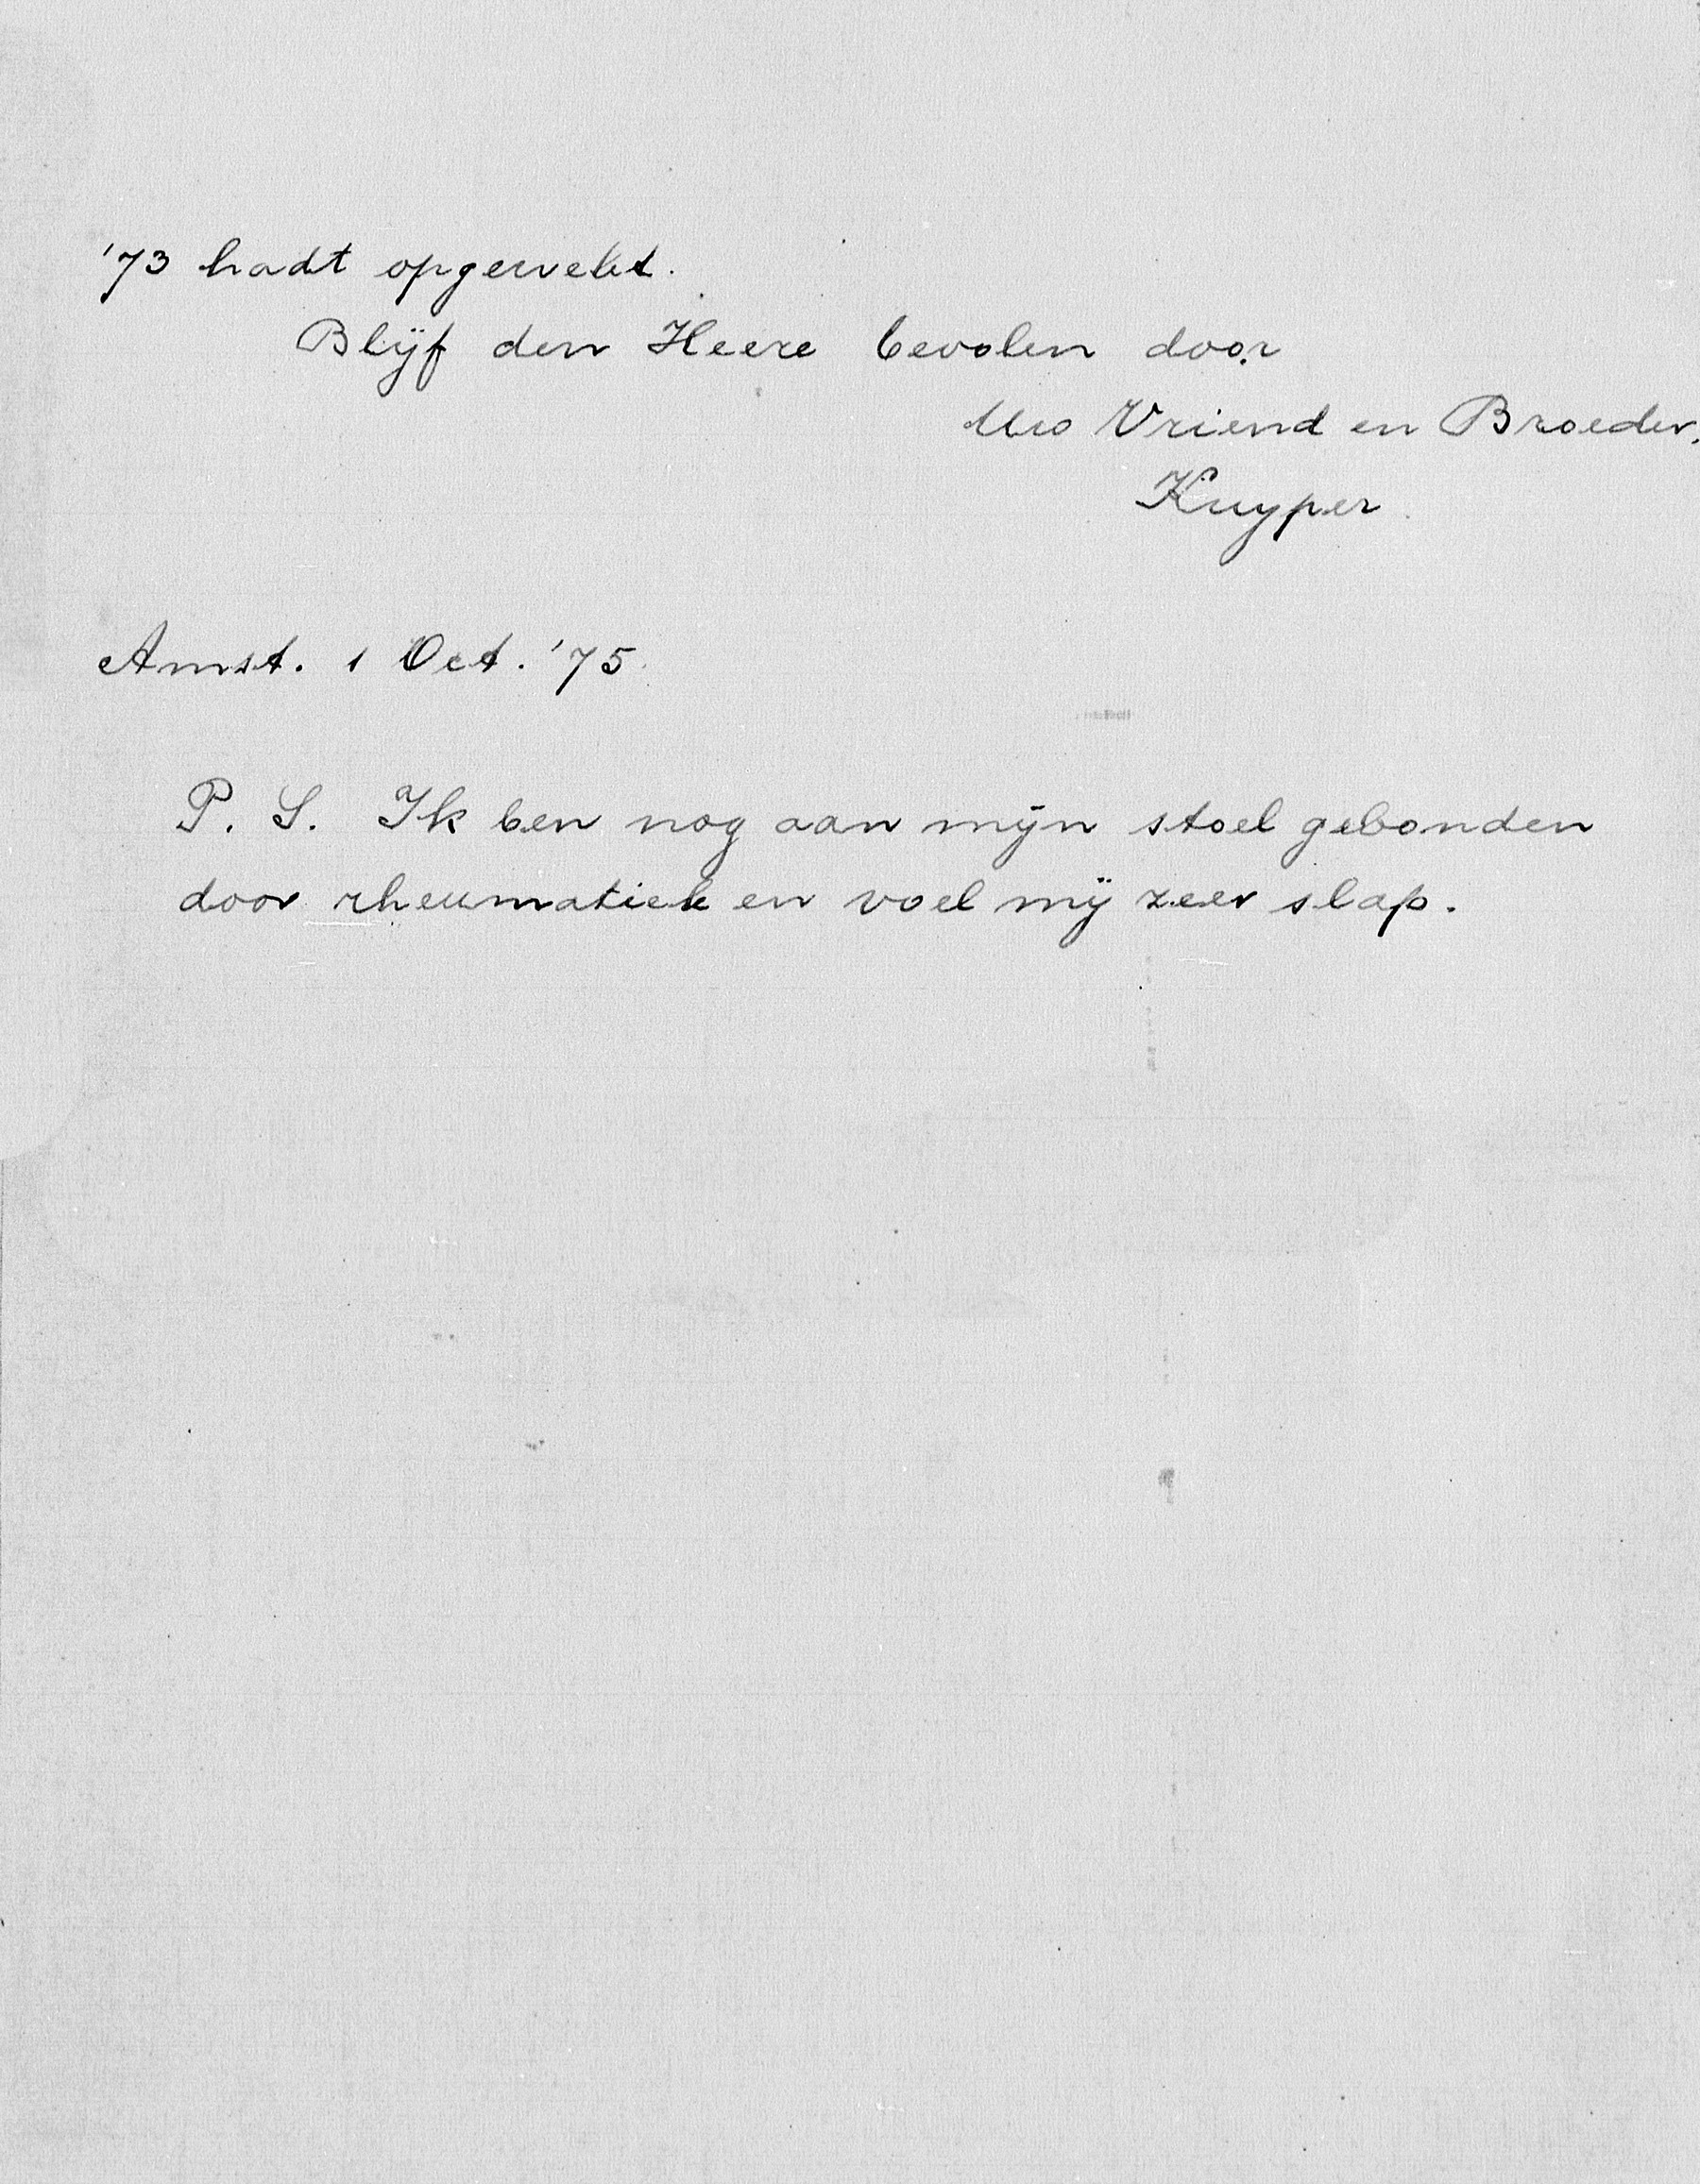 '73 hadt opgewekt.
Blijf den Heere bevolen door
Uw Vriend en Broeder.
Kuyper
Amst. 1 Oct. '75
P. S. Ik ben nog aan mijn stoel gebonden
door rheumatiek en voel mij zeer slap.